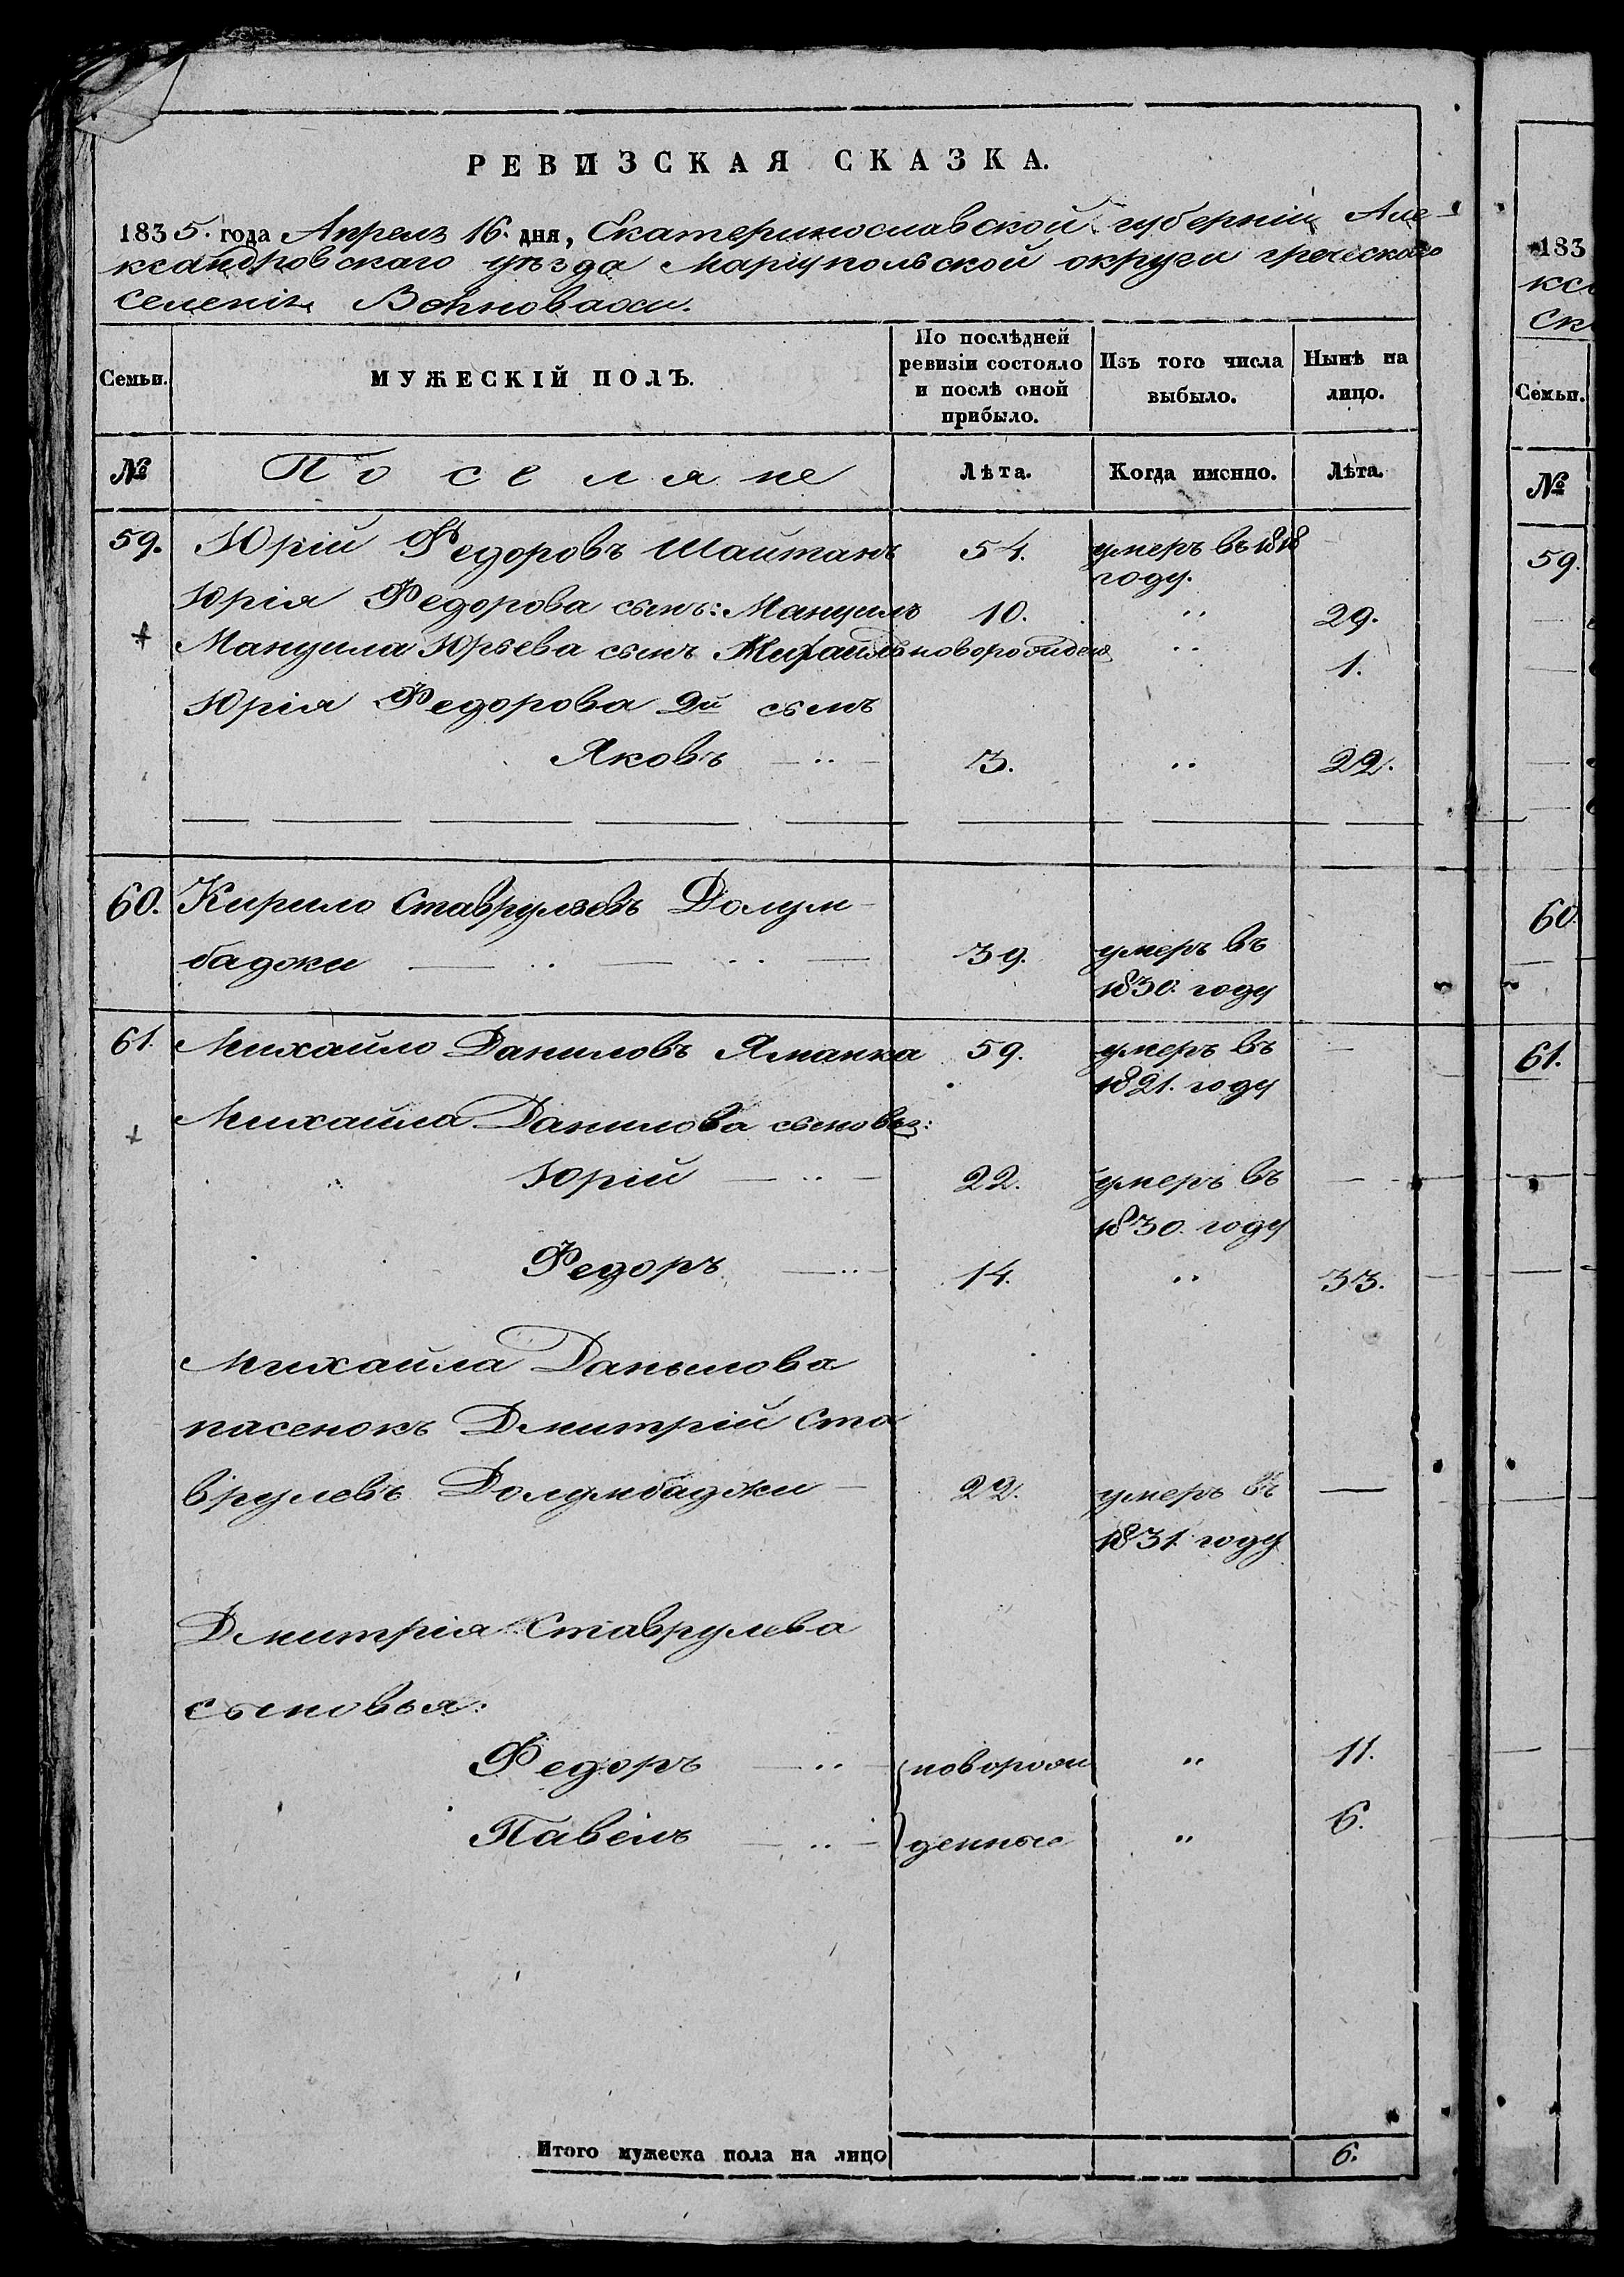 РЕВИЗСКАЯ СКАЗКА.
1835. года Апреля 16. дня, Екатеринославской губерніи Але-
ксандровскаго уѣзда Маріупольской округи греческаго
селенія
Семьи. МУЖЕСКІЙ ПОЛЪ. По послѣдней ревизіи состояло и послѣ оной прибыло. Изъ того числа выбыло. Нынѣ на лицо.
№ Поселяне Лѣта. Когда именно. Лѣта.
59. Юрій Федоровъ Шаитанъ 54. умеръ въ 1818
году.
Юрія Федорова сынъ: Мануилъ 10. " 29.
Мануила Юрьева сынъ Михаилъ новорожден " 1.
Юрія Федорова 2й сынъ
Яковъ — " — 3. " 22.
60. Кирило Ставрулевъ Долум-
баджи 39. умеръ въ
1830. году
61. Михайло Даниловъ Яманка 59. умеръ въ —
1821. году
Михаила Данилова сыновья:
Юрій — " — 22. умеръ въ —
1830. году
Федоръ — " — 14. " 33.
Михайла Данылова
пасенокъ Дмитрій Ста
врулевъ Долумбаджи — 22. умеръ въ —
1831. году
Дмитрія Ставрулева
сыновья:
Федоръ — " — новорож " 11.
Павелъ — " — денные " 6.
Итого мужеска пола на лицо 6.
183
ксс
Ск
Семьи.
№
59.
60.
61.